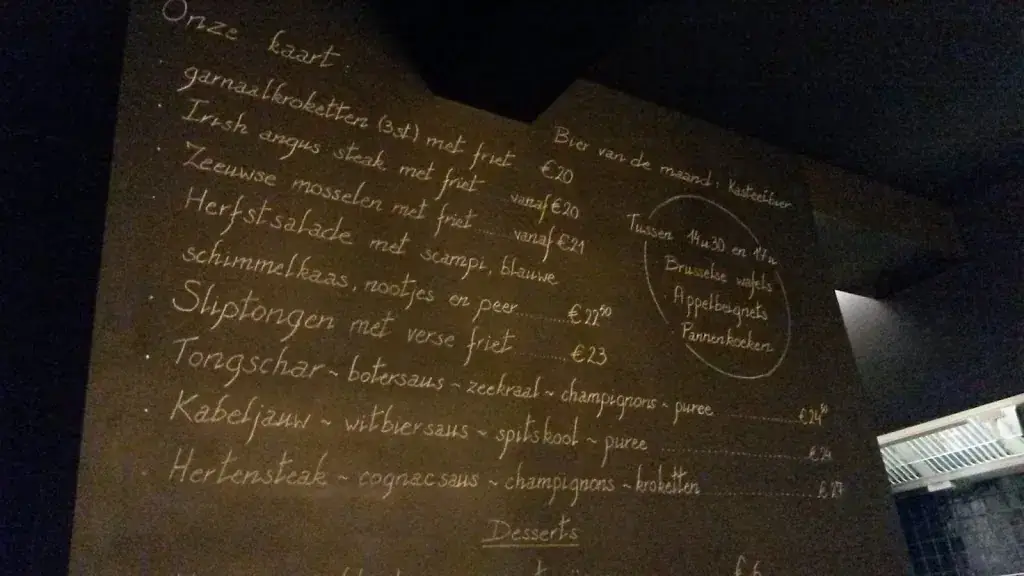 Onze kaart
garnaalkroketten (3st) met friet €20
Irish angus steak met friet vanaf €20
Zeeuwse mosselen met friet ...... vanaf €21
Herfstsalade met scampi, blauwe
schimmelkaas, nootjes en peer ...... €22
Sliptongen met verse friet ...... €23
Tongschar ~ botersaus ~ zeekraal ~ champignons ~ puree ...... €24
Kabeljauw ~ witbiersaus ~ spitskool ~ puree ......
Hertensteak ~ cognacsaus ~ champignons ~ kroketten ......
Desserts
Bier van de maand:
Tussen 14u30 en 17u
Brusselse wafels
Appelbeignets
Pannenkoeken